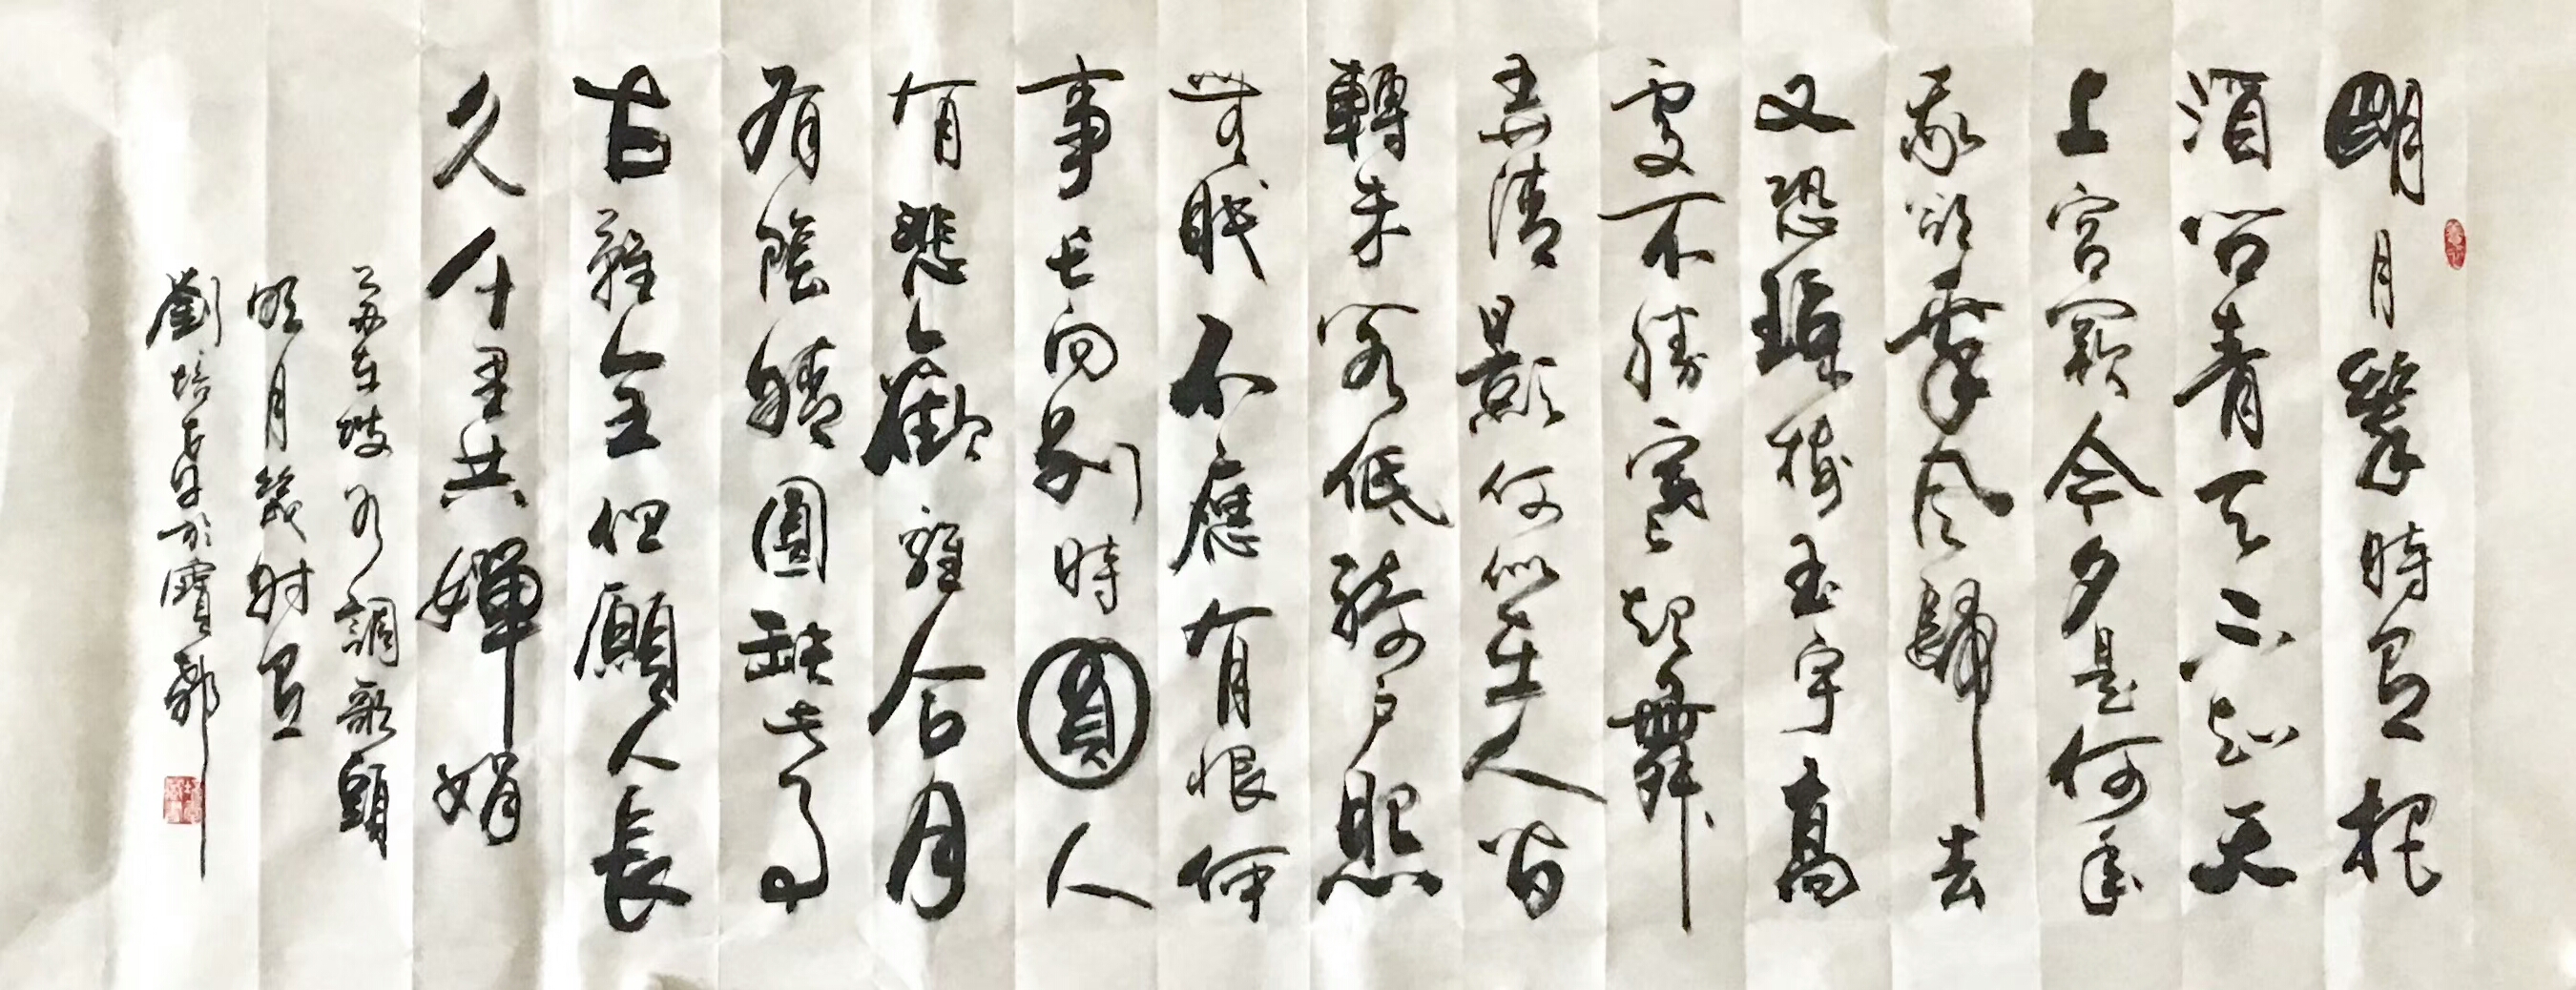 明月幾時有把
酒問青天不知天
上宮闕今夕是何年
我欲乘風歸去
又恐瓊樓玉宇高
處不勝寒起舞
弄清影何似在人間
轉朱閣低綺戶照
無眠不應有恨何
事長向別時圓人
有悲歡離合月
有陰晴圓缺此事
古難全但願人長
久千里共嬋娟
蘇東坡水調歌頭
明月幾時有
劉培於寶